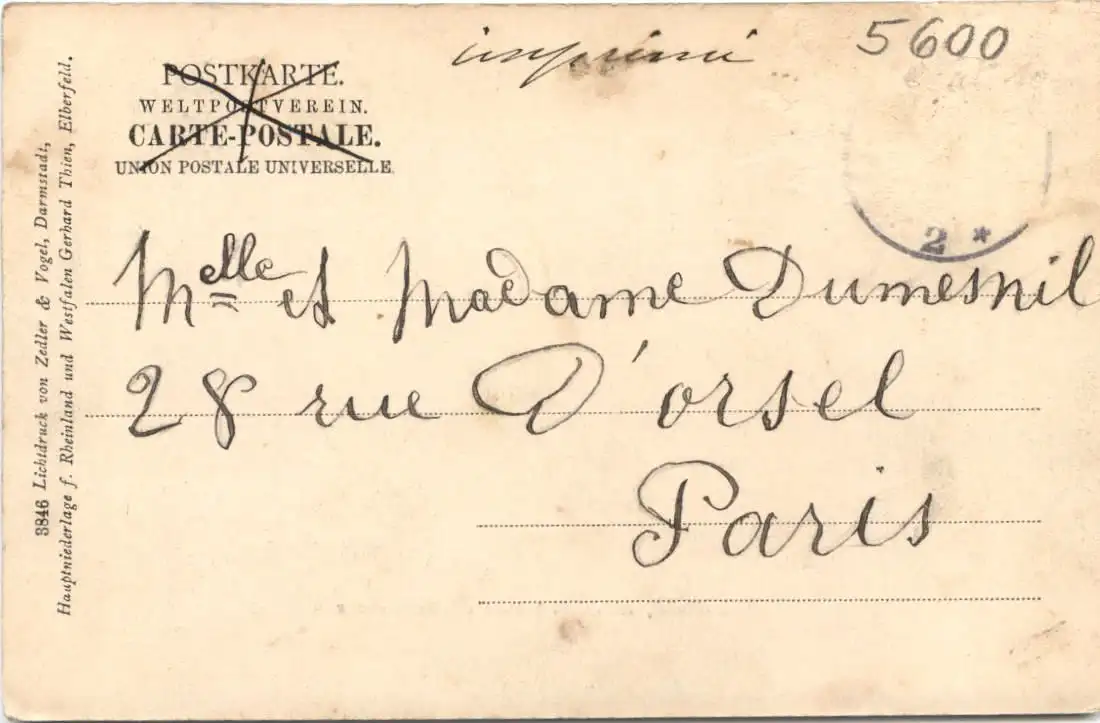 imprimé
5600
POSTKARTE.
WELTPOSTVEREIN.
CARTE-POSTALE.
UNION POSTALE UNIVERSELLE.
2 *
Melle et Madame Dumesnil
28 rue D'orsel
Paris
3846 Lichtdruck von Zedler & Vogel, Darmstadt,
Hauptniederlage f. Rheinland und Westfalen Gerhard Thien, Elberfeld.